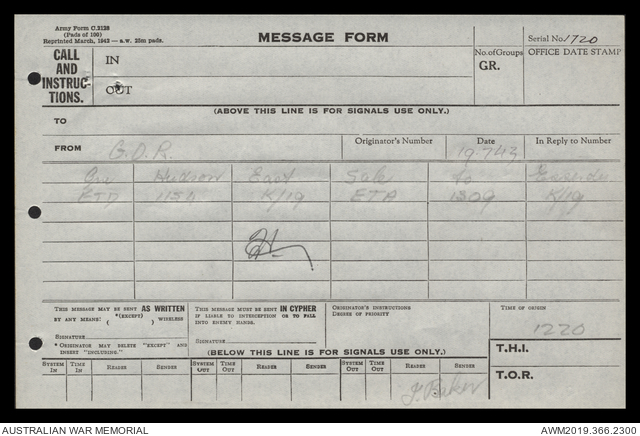 Army Form C.2128
(Pads of 100)
Reprinted March, 1943 — a.w. 25m pads.
MESSAGE FORM
Serial No. 1720
CALL AND INSTRUC-TIONS.
IN
OUT
No. of Groups
GR.
OFFICE DATE STAMP
(ABOVE THIS LINE IS FOR SIGNALS USE ONLY.)
TO
FROM G.O.R.
Originator's Number
Date 19.7.43
In Reply to Number
One Hudson East Sale to
ETD 1150 K/19 ETA 1309 K/19
THIS MESSAGE MAY BE SENT AS WRITTEN BY ANY MEANS *(EXCEPT) ( ) WIRELESS
SIGNATURE
* ORIGINATOR MAY DELETE "EXCEPT" AND INSERT "INCLUDING."
THIS MESSAGE MUST BE SENT IN CYPHER IF LIABLE TO INTERCEPTION OR TO FALL INTO ENEMY HANDS.
SIGNATURE
ORIGINATOR'S INSTRUCTIONS
DEGREE OF PRIORITY
TIME OF ORIGIN
1220
T.H.I.
T.O.R.
(BELOW THIS LINE IS FOR SIGNALS USE ONLY.)
SYSTEM IN TIME IN READER SENDER SYSTEM OUT TIME OUT READER SENDER SYSTEM OUT TIME OUT READER SENDER
J. Baker
AUSTRALIAN WAR MEMORIAL
AWM2019.366.2300